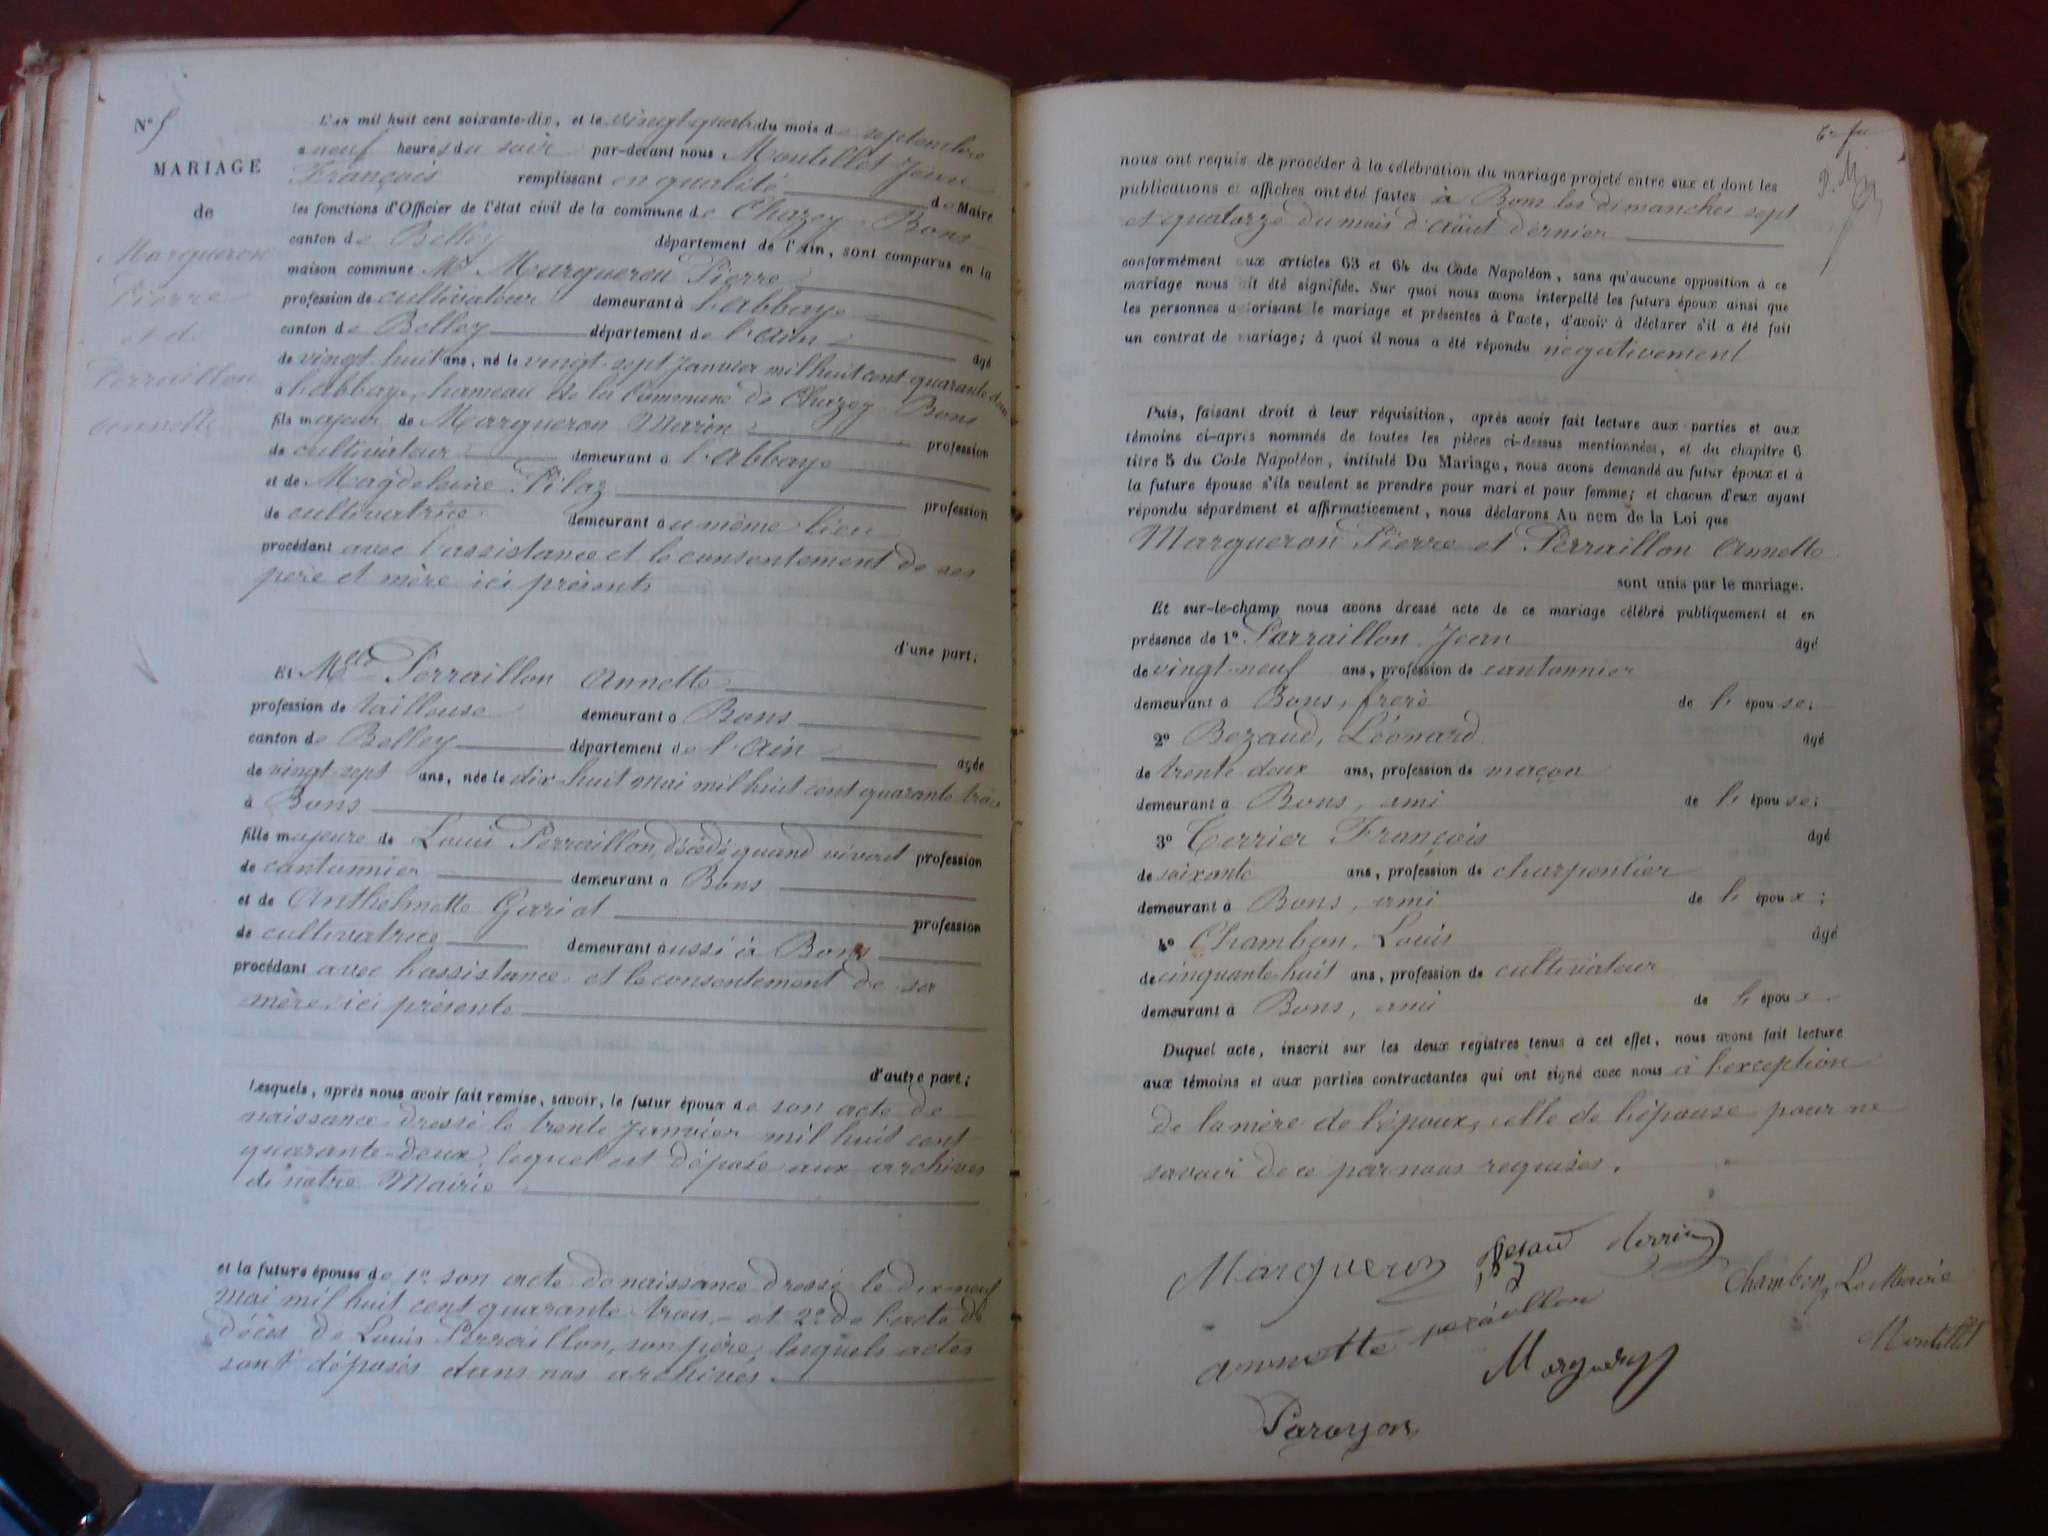 N° 5
MARIAGE
de
Margueron
Pierre
et de
Perraillon
Annette
L'an mil huit cent soixante-dix, et le vingt quatre du mois de septembre
à neuf heures du soir par-devant nous Montillet Jean
François remplissant en qualité de Maire
les fonctions d'Officier de l'état civil de la commune de Chazey-Bons
canton de Belley département de l'Ain, sont comparus en la
maison commune Mr Margueron Pierre
profession de cultivateur demeurant à l'abbaye
canton de Belley département de l'ain âgé
de vingt huit ans, né le vingt-sept Janvier mil huit cent quarante deux
à l'abbaye, hameau de la Commune de Chazey-Bons
fils majeur de Margueron Marin profession
de cultivateur demeurant à l'abbaye
et de Magdeleine Pilaz profession
de cultivatrice demeurant au même lieu
procédant avec l'assistance et le consentement de ses
père et mère ici présents
d'une part;
Et Melle Perraillon Annette
profession de tailleuse demeurant à Bons
canton de Belley département de l'ain âgée
de vingt sept ans, née le dix-huit mai mil huit cent quarante trois
à Bons
fille majeure de Louis Perraillon, décédé quand vivait profession
de cantonnier demeurant à Bons
et de Anthelmette Gariot profession
de cultivatrice demeurant aussi à Bons
procédant avec l'assistance et le consentement de sa
mère, ici présente
d'autre part;
Lesquels, après nous avoir fait remise, savoir, le futur époux de son acte de
naissance dressé le trente Janvier mil huit cent
quarante-deux, lequel est déposé aux archives
de notre Mairie
et la future épouse de 1° son acte de naissance dressé le dix-neuf
mai mil huit cent quarante trois, et 2° de l'acte de
décès de Louis Perraillon, son père, lesquels actes
sont déposés dans nos archives.
nous ont requis de procéder à la célébration du mariage projeté entre eux et dont les
publications et affiches ont été faites à Bons les dimanches sept
et quatorze du mois d'août dernier
conformément aux articles 63 et 64 du Code Napoléon, sans qu'aucune opposition à ce
mariage nous ait été signifiée. Sur quoi nous avons interpellé les futurs époux ainsi que
les personnes autorisant le mariage et présentes à l'acte, d'avoir à déclarer s'il a été fait
un contrat de mariage; à quoi il nous a été répondu négativement
Puis, faisant droit à leur réquisition, après avoir fait lecture aux parties et aux
témoins ci-après nommés de toutes les pièces ci-dessus mentionnées, et du chapitre 6
titre 5 du Code Napoléon, intitulé Du Mariage, nous avons demandé au futur époux et à
la future épouse s'ils veulent se prendre pour mari et pour femme; et chacun d'eux ayant
répondu séparément et affirmativement, nous déclarons Au nom de la Loi que
Margueron Pierre et Perraillon Annette
sont unis par le mariage.
Et sur-le-champ nous avons dressé acte de ce mariage célébré publiquement et en
présence de 1° Parraillon Jean âgé
de vingt-neuf ans, profession de cantonnier
demeurant à Bons, frère de l'épouse;
2° Bezaud, Léonard âgé
de trente deux ans, profession de maçon
demeurant à Bons, ami de l'épouse;
3° Terrier François âgé
de soixante ans, profession de charpentier
demeurant à Bons, ami de l'époux;
4° Chambon, Louis âgé
de cinquante huit ans, profession de cultivateur
demeurant à Bons, ami de l'époux
Duquel acte, inscrit sur les deux registres tenus à cet effet, nous avons fait lecture
aux témoins et aux parties contractantes qui ont signé avec nous à l'exception
de la mère de l'époux, celle de l'épouse pour ne
savoir de ce par nous requises.
Margueron
Chambon, Le Maire
Montillet
annette